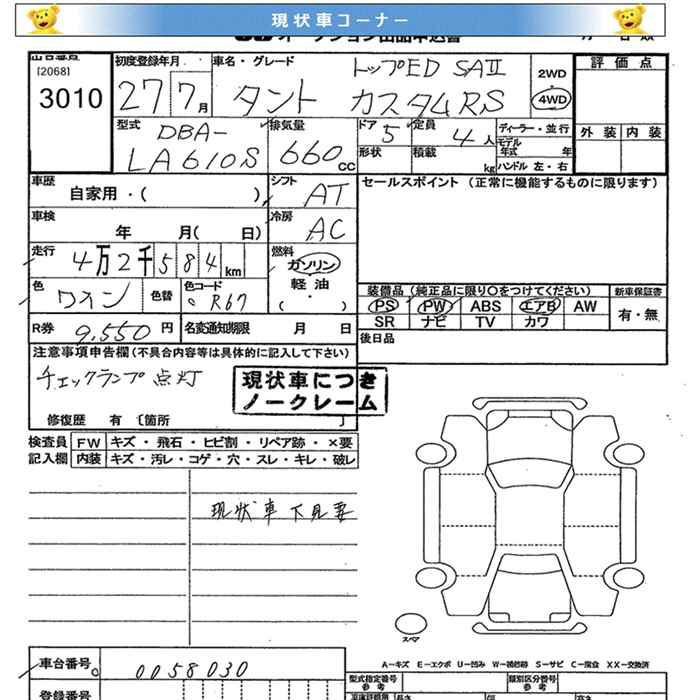 現状車コーナー
オークション出品申込書
出品番号 初度登録年月 車名・グレード トップED SAⅡ 2WD 評価点
[2068]
3010 27 7月 タント カスタムRS 4WD
型式 DBA- 排気量 ドア 5 定員 4人 ディーラー・並行 外装 内装
LA610S 660cc 形状 積載 kg モデル年式 年
ハンドル 左・右
車歴 シフト セールスポイント (正常に機能するものに限ります)
自家用・( ) AT
車検 冷房
年 月( 日) AC
走行 燃料
4万2千584km ガソリン
軽油
( ・ )
色 ワイン 色替 色コード R67 装備品(純正品に限り○をつけてください) 新車保証書
PS PW ABS エアB AW 有・無
R券 9,550円 名変通知期限 月 日 SR ナビ TV カワ
注意事項申告欄(不具合内容等は具体的に記入して下さい) 後日品
チェックランプ点灯
現状車につき
ノークレーム
修復歴 有 〔箇所 〕
検査員 FW キズ・飛石・ヒビ割・リペア跡・×要
記入欄 内装 キズ・汚レ・コゲ・穴・スレ・キレ・破レ
現状車下見要
スペア
A－キズ E－エクボ U－凹み W－補修跡 S－サビ C－腐食 XX－交換済
車台番号 0058030 型式指定番号 類別区分番号
参考 参考
登録番号 長さ 幅 高さ